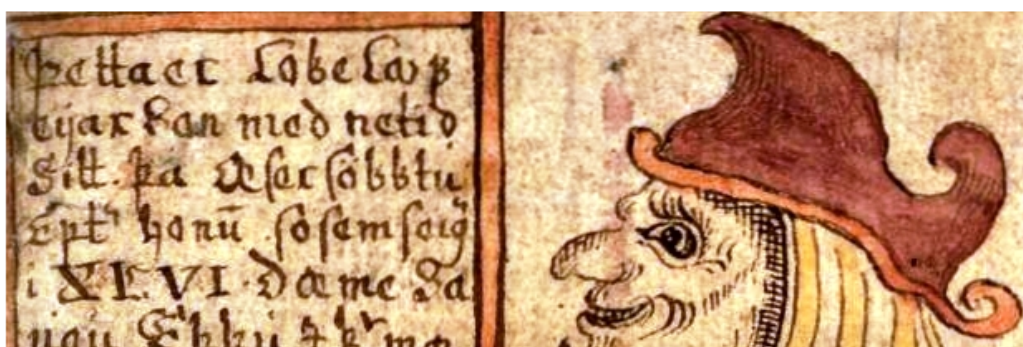 Þetta er Lobe Lauf
eijar Son med netid
Sitt. þá Æser
Ept honū so sem seig
i XLVI dæme Sa